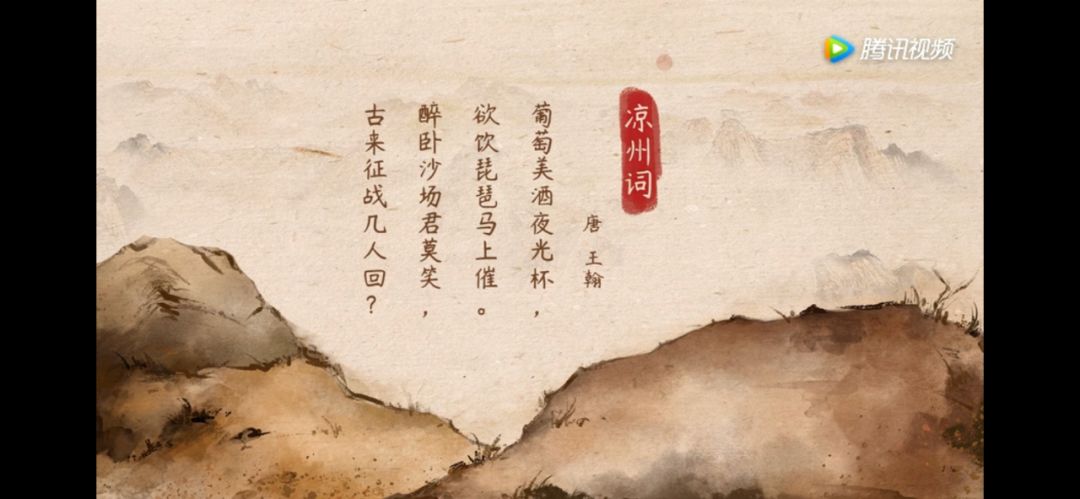 腾讯视频
凉州词
唐 王翰
葡萄美酒夜光杯，
欲饮琵琶马上催。
醉卧沙场君莫笑，
古来征战几人回？